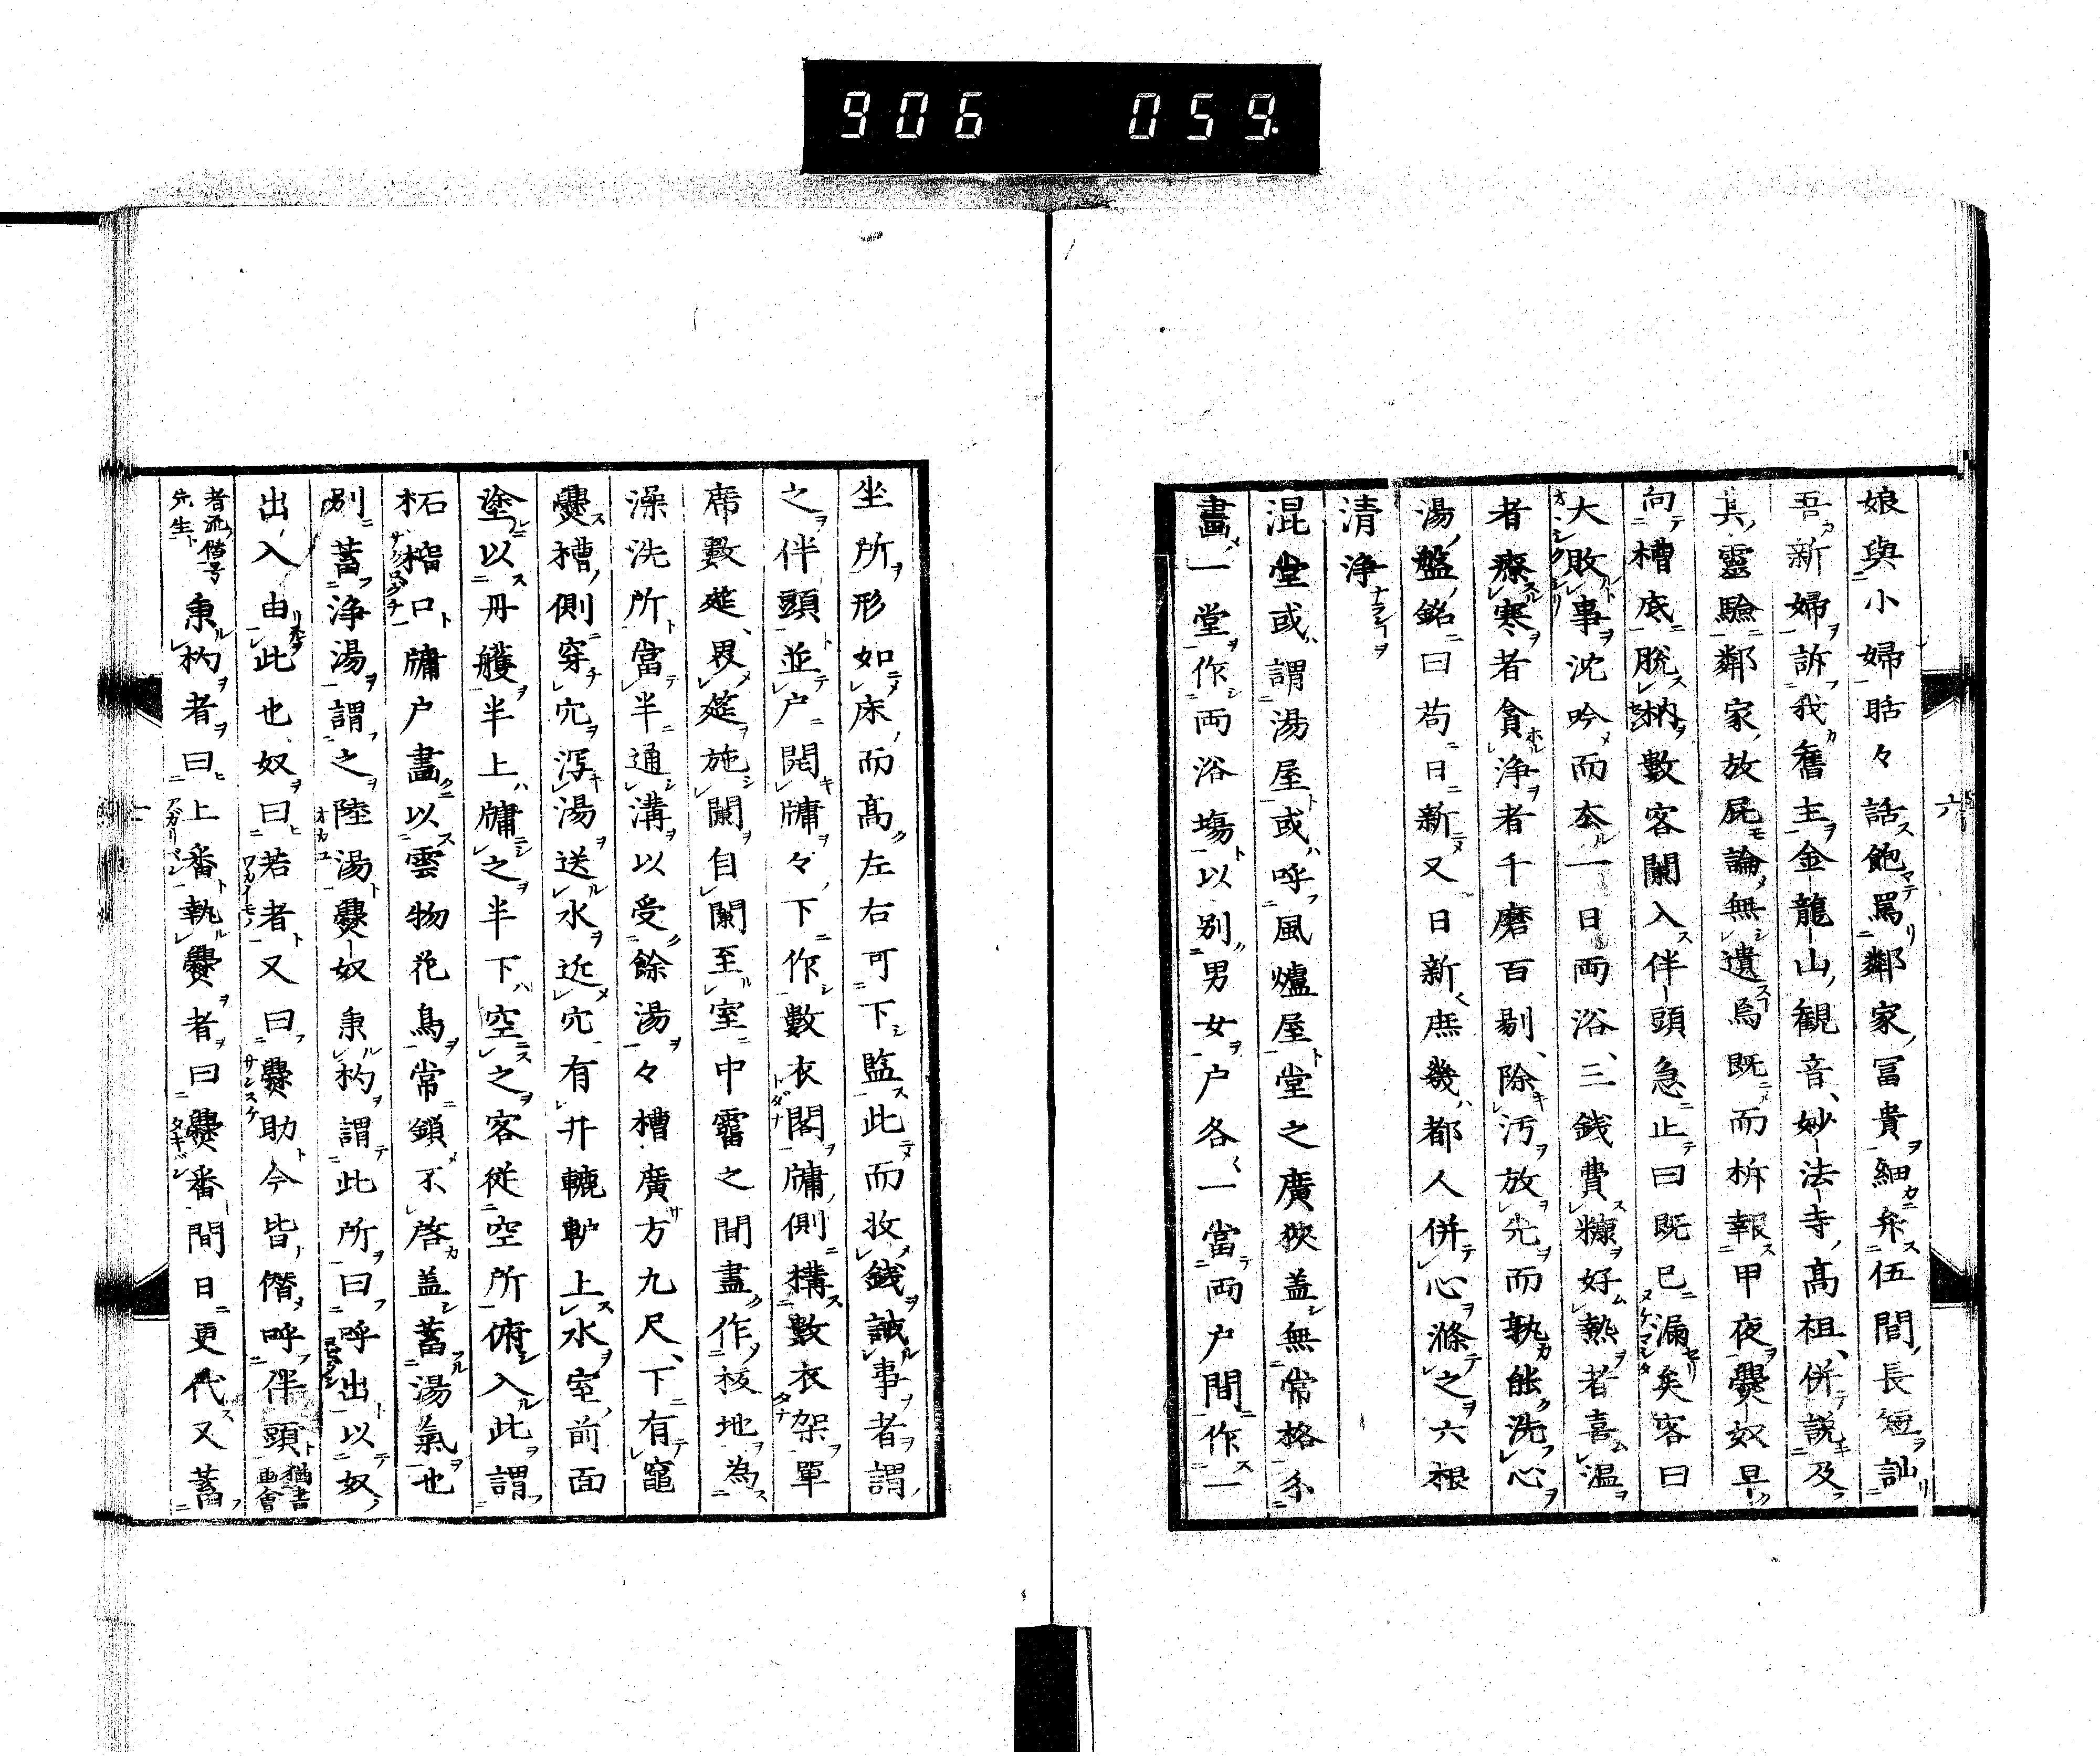 906 059
六
娘與小婦聒々話飽罵鄰家冨貴細弁伍間長短訕
吾新婦訴我舊主金龍山觀音妙法寺髙祖併説及
其靈驗鄰家放屁論無遺焉既而柝報甲夜爨奴早
向槽底脱枘數客闌入伴頭急止曰既已漏矣客曰
大敗事沈吟而去一日両浴三銭費糠好熱者喜温
者療寒者貪浄者千磨百剔除汚放光而孰能洗心
湯盤銘曰苟日新又日新庶幾都人併心滌之六根
清浄
混堂或謂湯屋或呼風爐屋堂之廣狹盖無常格糸
畫一堂作両浴塲以別男女戸各一當両戸間作一
坐所形如床而髙左右可下監此而收銭誡事者謂
之伴頭並戸開牗々下作數衣閣牗側構數衣架單
席數筵界筵施闌自闌至室中霤之間盡作板地為
澡洗所當半通溝以受餘湯々槽廣方九尺下有竈
爨槽側穿穴泻湯送水近穴有井轆轳上水室前面
塗以丹雘半上牗之半下空之客從空所俯入此謂
柘榴口牗戸畫以雲物花鳥常鎖不啓盖蓄湯氣也
別蓄浄湯謂之陸湯爨奴秉杓謂此所曰呼出以奴
出入由此也奴曰若者又曰爨助今皆僭呼伴頭猶書画會
者流僭号先生秉杓者曰上番執爨者曰爨番間日更代又蓄